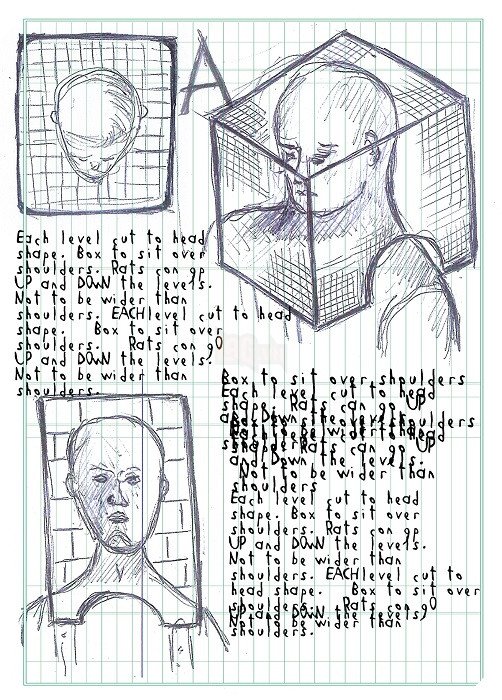 A
Each level cut to head
shape. Box to sit over
shoulders. Rats can gp
UP and DOWN the levels.
Not to be wider than
shoulders. EACHlevel cut to head
shape. Box to sit over
shoulders. Rats can gO
UP and DOWN the levels.
Not to be wider than
shoulders.
Box to sit over shpulders
Each level cut to head
shape. Rats can go UP
and Down the levels.
Not to be wider than
shoulders
Each level cut to head
shape. Box to sit over
shoulders. Rats can gp
UP and DOWN the levels.
Not to be wider than
shoulders. EACHlevel cut to
head shape. Box to sit over
shoulders. Rats can gO
UP and DOWN the levels)
Not to be wider than
shoulders.